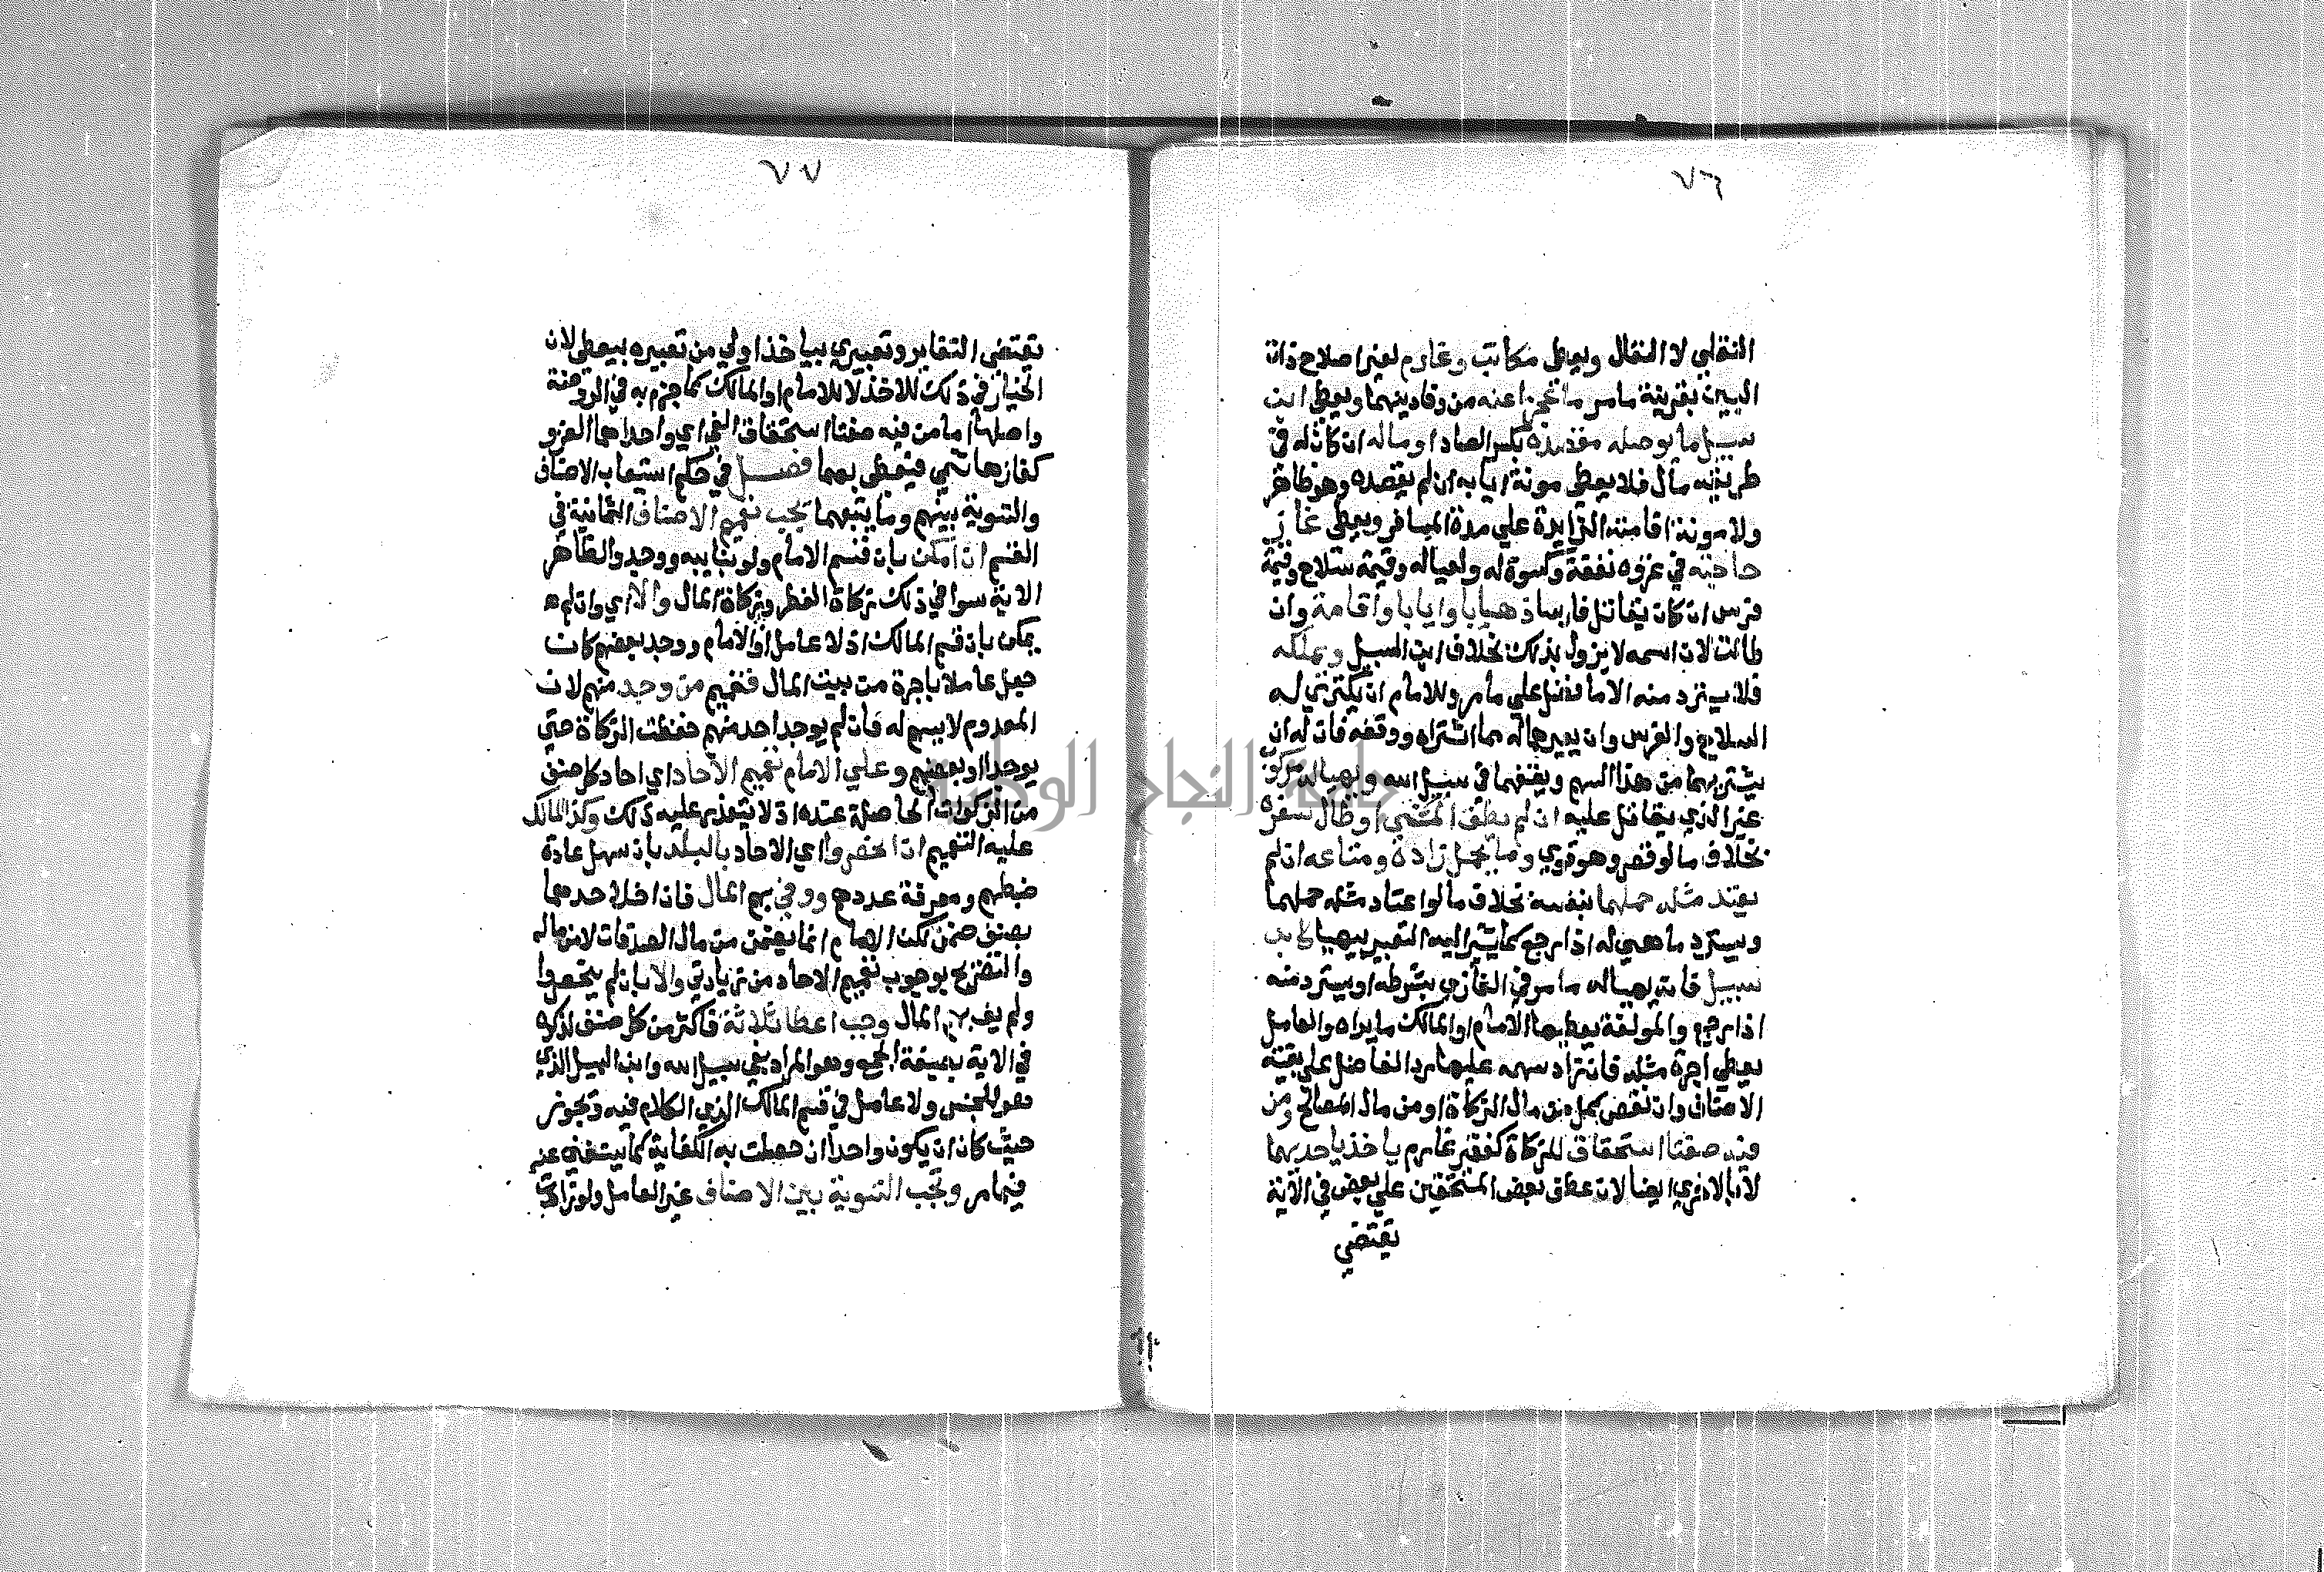 ٧٦
النقلي لا النقال ويعطي مكاتب وغارم لغير اصلاح ذات
البين بقرينة ما مر ما عجزا عنه من وفا دينهما ويعطي ابن
سبيل ما يوصله مقصده بكسر الصاد او ماله ان كان له في
طريقه مال فلا يعطي مونة ايابه ان لم يقصده وهو ظاهر
ولا مونة اقامته الزايدة علي مدة المسافر ويعطي غاز
حاجته في غزوه نفقة وكسوة له ولعياله وقيمة سلاح وقيمة
فرس ان كان يقاتل فارسا ذهابا وايابا واقامة وان
طالت لان اسمه لا يزول بذلك بخلاف ابن السبيل ويملكه
فلا يسترد منه الا ما فضل علي ما مر وللامام ان يكتري له
السلاح والفرس وان يعيرهما له مما اشتراه ووقفه فان له ان
يشتريهما من هذا السهم ويقفهما في سبيل الله ويهيا له مركوب
غير الذي يقاتل عليه ان لم يطق المشي او طال سفره
بخلاف ما لو قصر وهو قوي وما يحمل زاده ومتاعه ان لم
يعتد مثله حملهما بنفسه بخلاف ما لو اعتاد مثله حملهما
ويسترد ما هيي له اذا رجع كما يشير اليه التعبير بيهيا كابن
سبيل فانه يهيا له ما مر في الغازي بشرطه او يسترد منه
اذا رجع والمولفة يعطيها الامام او المالك ما يراه والعامل
يعطي اجرة مثله فان زاد سهمه عليها رد الفاضل علي بقية
الاصناف وان نقص كمل من مال الزكاة او من مال المصالح ومن
فيه صفتا استحقاق للزكاة كفقير غارم ياخذ باحديهما
لا بالاخري ايضا لان عطف بعض المستحقين علي بعض في الآية
تقتضي
٧٧
تقتضي التغاير وتعبيري بياخذ اولي من تعبيره بيعطي لان
الخيار في ذلك للاخذ لا للامام او المالك كما جزم به في الروضة
واصلها اما من فيه صفتا استحقاق الفي اي واحداهما الغزو
كغاز هاشمي فيعطي بهما فصل في حكم استيعاب الاصناف
والتسوية بينهم وما يتبعهما يجب تعميم الاصناف الثمانية في
القسم ان امكن بان قسم الامام ولو بنايبه ووجدوا لظاهر
الاية سوا في ذلك زكاة الفطر وزكاة المال والا اي وان لم
يمكن بان قسم المالك اذ لا عامل او الامام ووجد بعضهم كان
جعل عاملا باجرة من بيت المال فتعميم من وجد منهم لان
المعدوم لا سهم له فان لم يوجد احد منهم حفظت الزكاة حتي
يوجدوا او بعضهم وعلي الامام تعميم الآحاد اي احاد كل صنف
من الزكوات الحاصلة عنده اذ لا يتعذر عليه ذلك وكذا المالك
عليه التعميم ان انحصروا اي الاحاد بالبلد بان سهل عادة
ضبطهم ومعرفة عددهم ووفي بهم المال فان اخل احدهما
بصنف ضمن لكن الامام انما يضمن من مال الصدقات لا من ماله
والتصريح بوجوب تعميم الاحاد من زيادتي والا بان لم ينحصروا
ولم يف بهم المال وجب اعطا ثلاثة فاكثر من كل صنف لذكره
في الاية بصيغة الجمع وهو المراد بفي سبيل الله وابن السبيل الذي
هو للجنس ولا عامل في قسم المالك الذي الكلام فيه وتجوز
حيث كان ان يكون واحدا ان حصلت به الكفاية كما يستغني عنه
فيما مر وتجب التسوية بين الاصناف غير العامل ولو زادت
جامعة النجاح الوطنية